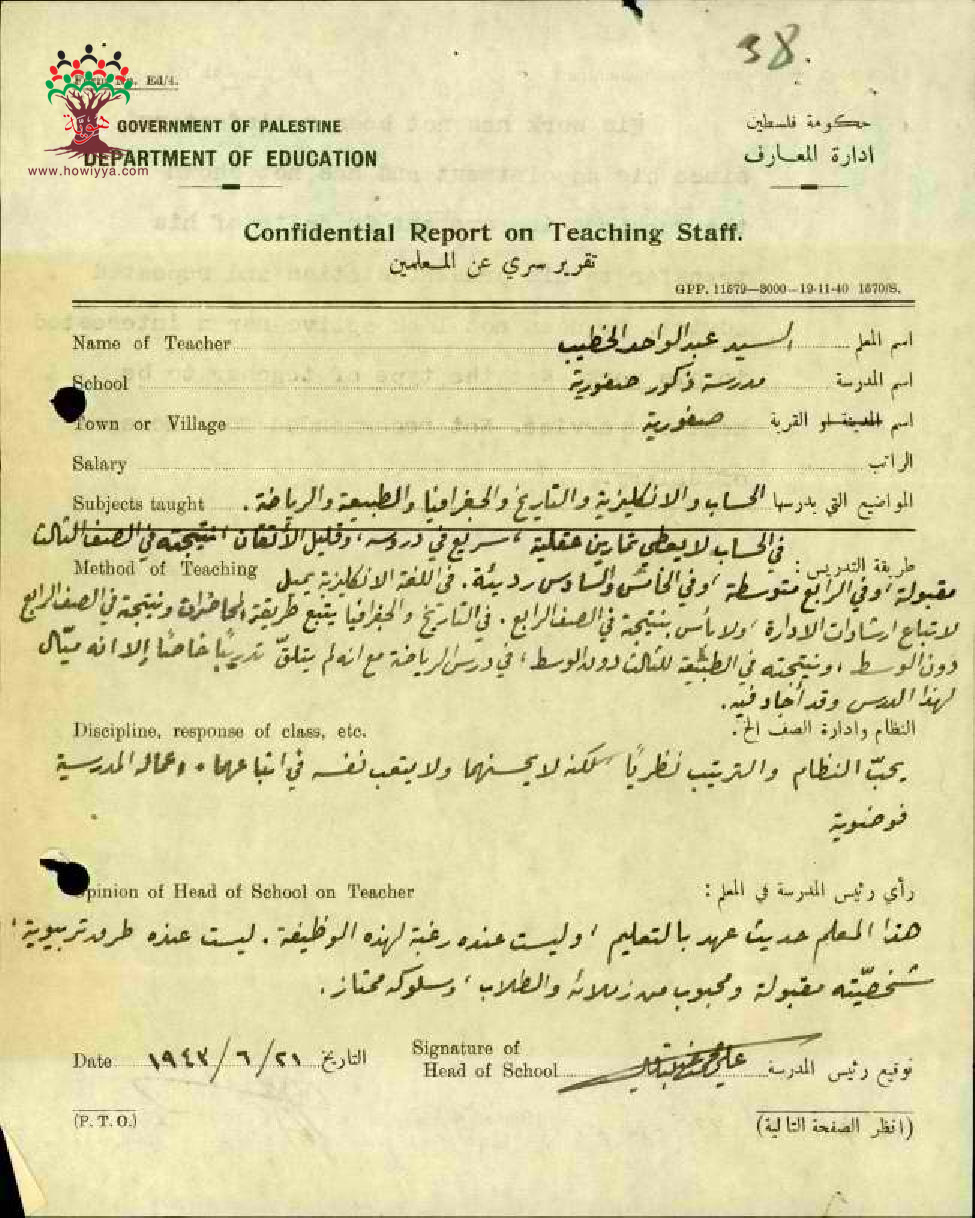 38
Form No. Ed/4.
هوية
www.howiyya.com
GOVERNMENT OF PALESTINE
DEPARTMENT OF EDUCATION
حكومة فلسطين
ادارة المعارف
Confidential Report on Teaching Staff.
تقرير سري عن المعلمين
GPP. 11679—3000—19-11-40 1670/S.
Name of Teacher السيد عبد الواحد الخطيب اسم المعلم
School مدرسة ذكور صفورية اسم المدرسة
Town or Village صفورية اسم المدينة او القرية
Salary الراتب
Subjects taught الحساب والانكليزية والتاريخ والجغرافيا والطبيعة والرياضة. المواضيع التي يدرسها
في الحساب لا يعطي تمارين عقلية، سريع في دروسه، وقليل الأتقان، نتيجته في الصف الثالث
Method of Teaching طريقة التدريس:
مقبولة، وفي الرابع متوسطة، وفي الخامس والسادس رديئة. في اللغة الانكليزية يميل
لاتباع ارشادات الادارة، ولا بأس بنتيجته في الصف الرابع. في التاريخ والجغرافيا يتبع طريقة المحاضرات ونتيجته في الصف الرابع
دون الوسط، ونتيجته في الطبيعة للثالث دون الوسط، في درس الرياضة مع انه لم يتلقّ تدريبًا خاصًا إلا انه ميّال
لهذا الدرس وقد أجاد فيه.
Discipline, response of class, etc. النظام وادارة الصف الخ.
يحبّ النظام والترتيب نظريًا لكنه لا يحسنهما ولا يتعب نفسه في اتباعهما. اعماله المدرسية
فوضوية
Opinion of Head of School on Teacher رأي رئيس المدرسة في المعلم:
هذا المعلم حديث عهد بالتعليم، وليست عنده رغبة لهذه الوظيفة. ليست عنده طرق تربيوية،
شخصيّته مقبولة ومحبوب من زملائه والطلاب، وسلوكه ممتاز.
Date ١٩٤٣/٦/٢١ التاريخ
Signature of
Head of School توقيع رئيس المدرسة
(P. T. O.) (انظر الصفحة التالية)